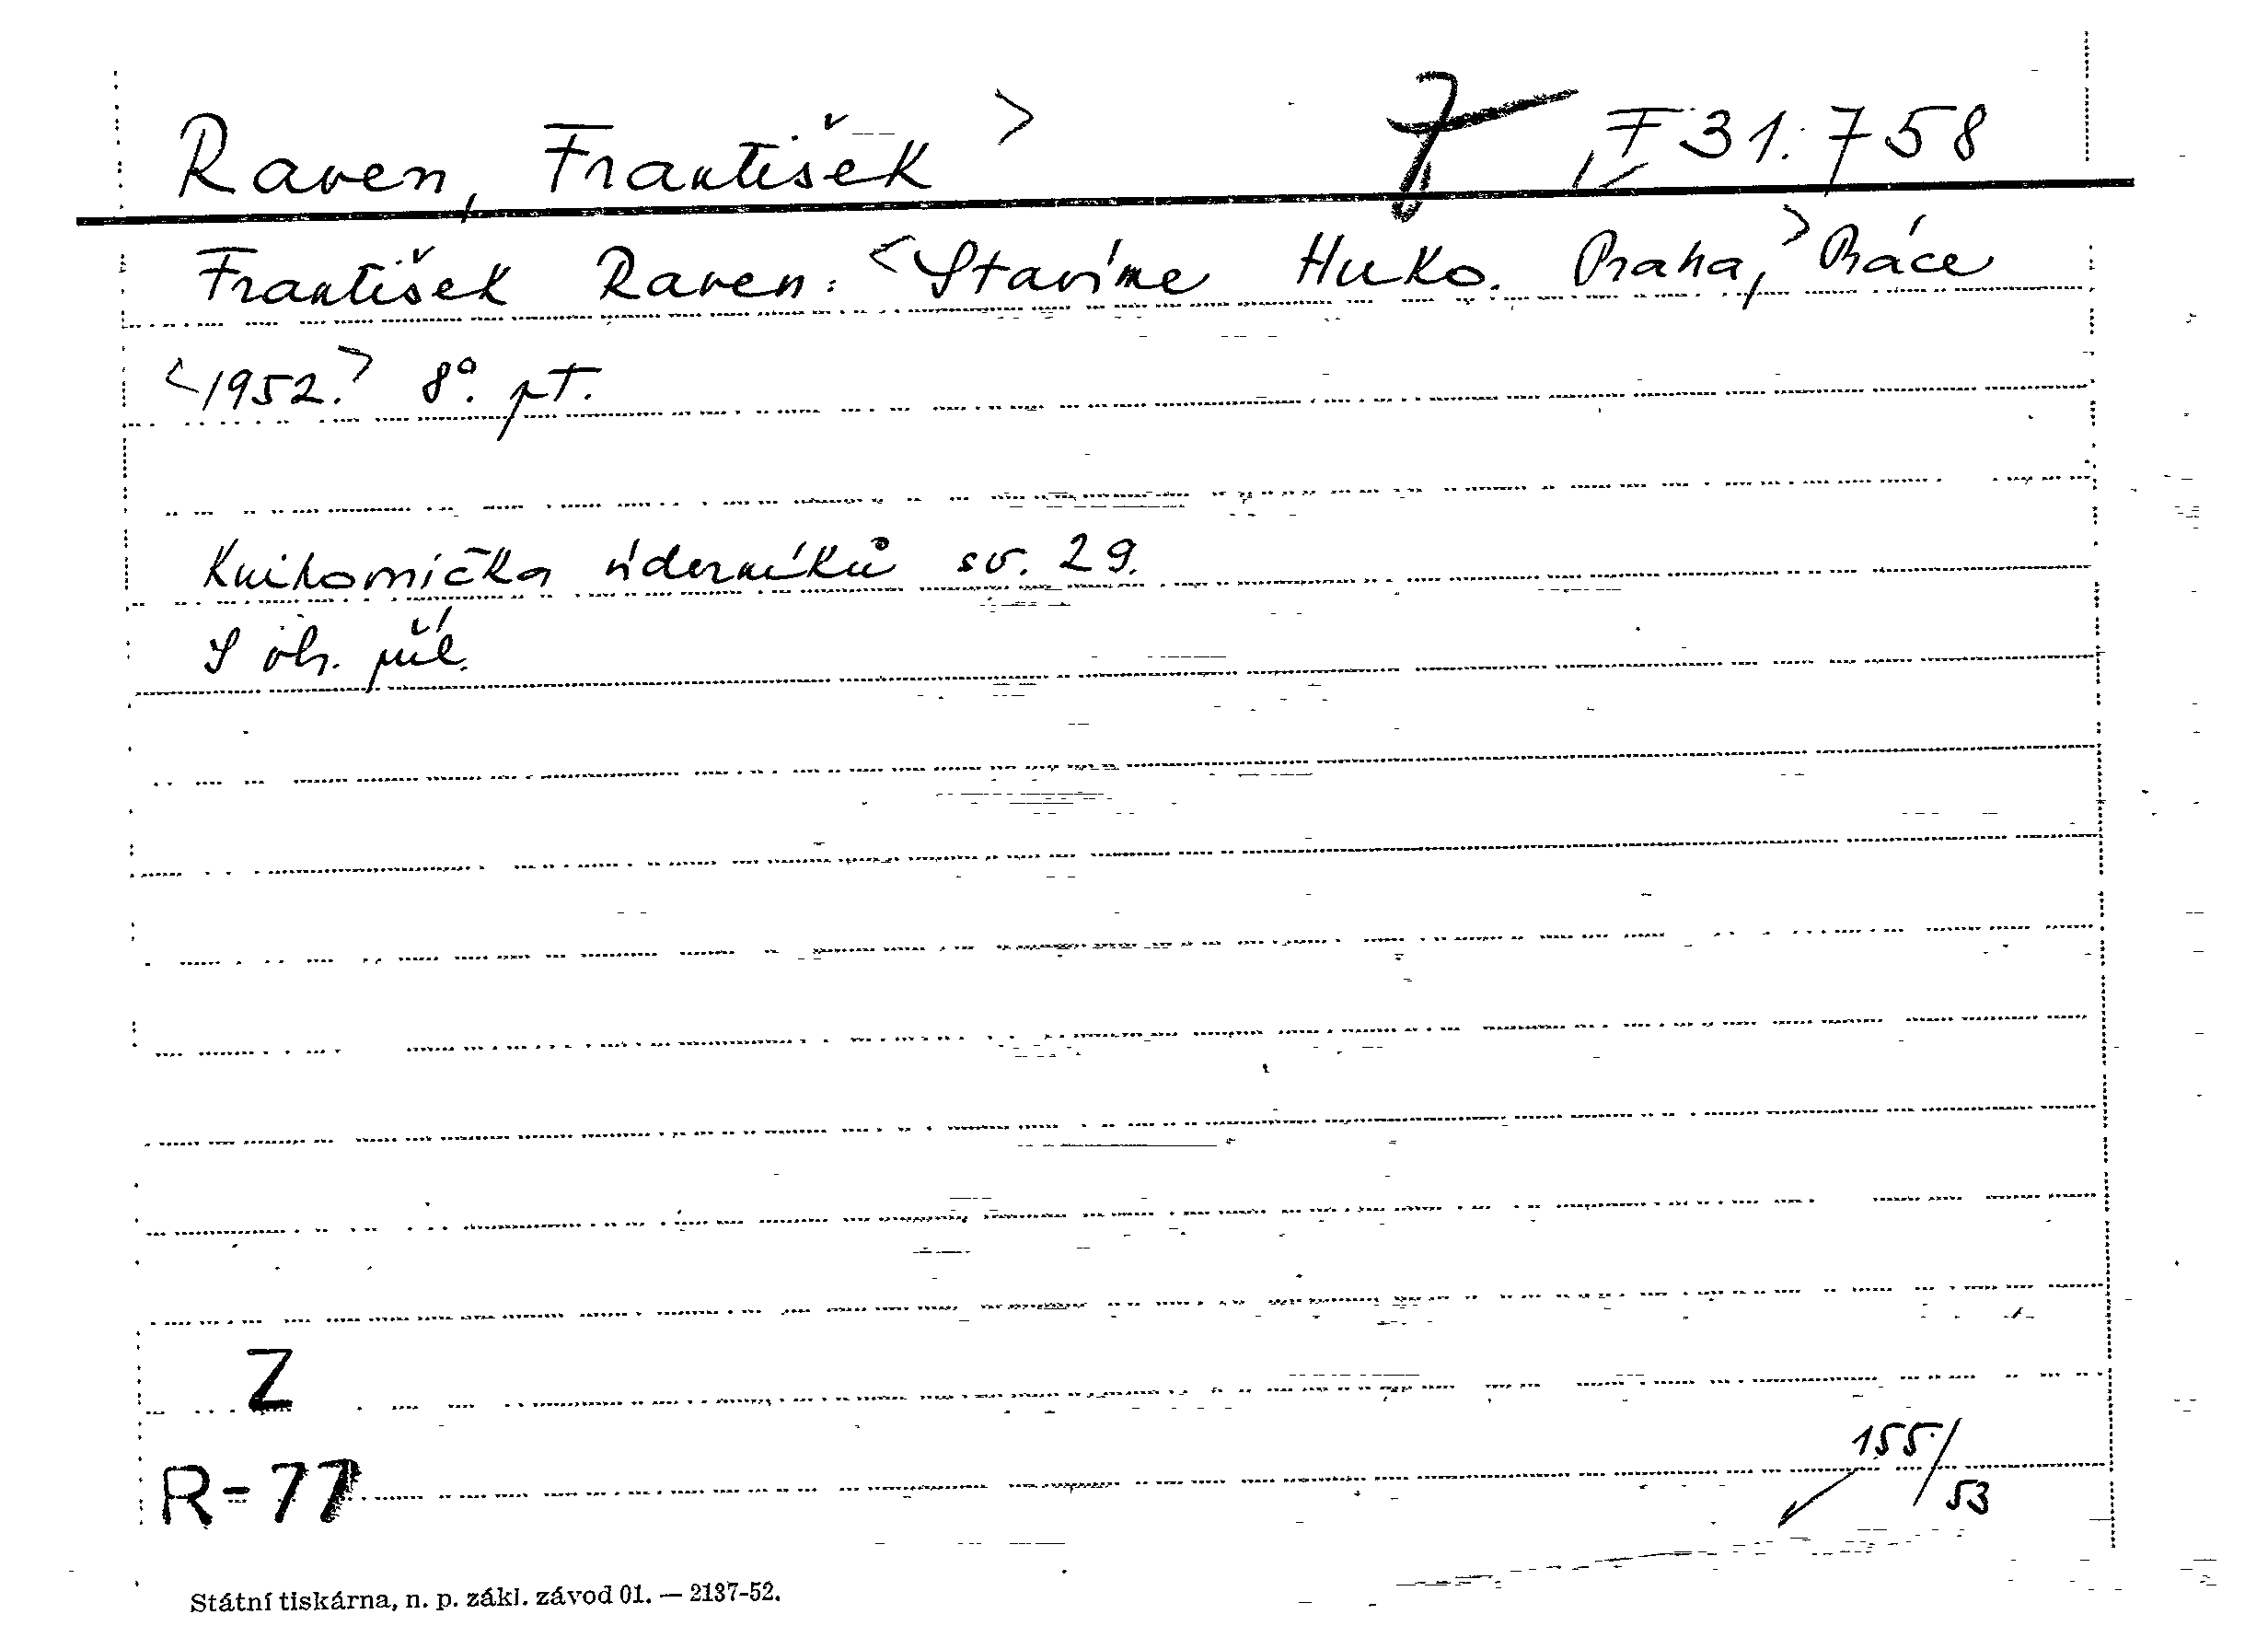 Raven, František > F 31.758
František Raven: <Stavíme Huko. Praha,> Práce
<1952.> 8°. pt.
Knihovnička úderníků sv. 29.
S obr. příl.
Z
R-77
155/53
Státní tiskárna, n. p. zákl. závod 01. — 2137-52.